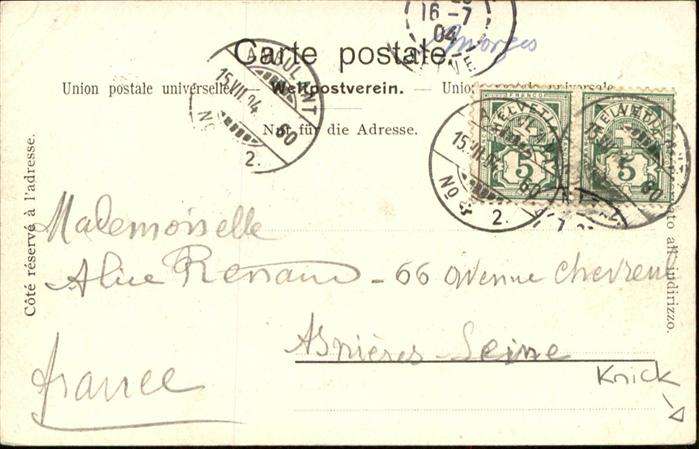 16-7
04
Carte postale.
Morges
Union postale universelle. — Weltpostverein. — Union postale universale
Nur für die Adresse.
AMBULANT
15.VII.04
No 2. 60
HELVETIA
HELVETIA
5
5
AMBULANT
15.VII.04
No 2. 60
60
Côté réservé à l'adresse.
Mademoiselle
Alice Renaud - 66 avenue Chevreul
Asnières - Seine
France
lato all'indirizzo.
Knick